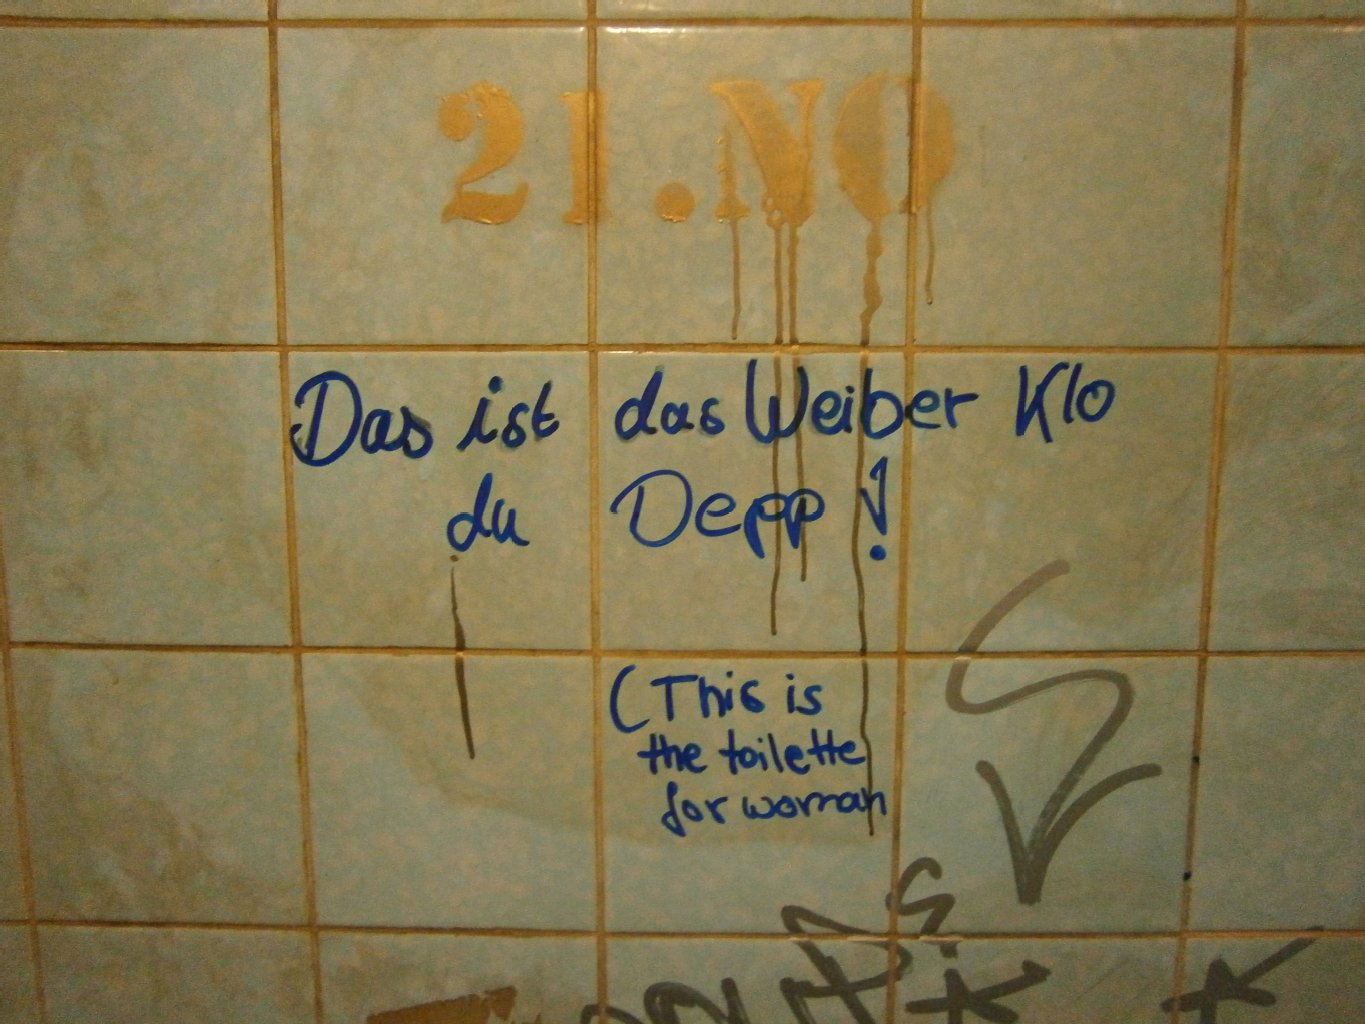 21.NO
Das ist das Weiber Klo
du Depp!
(This is
the toilette
for woman